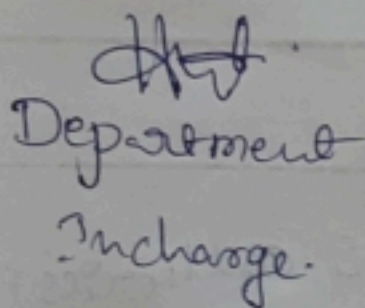 Department
Incharge.